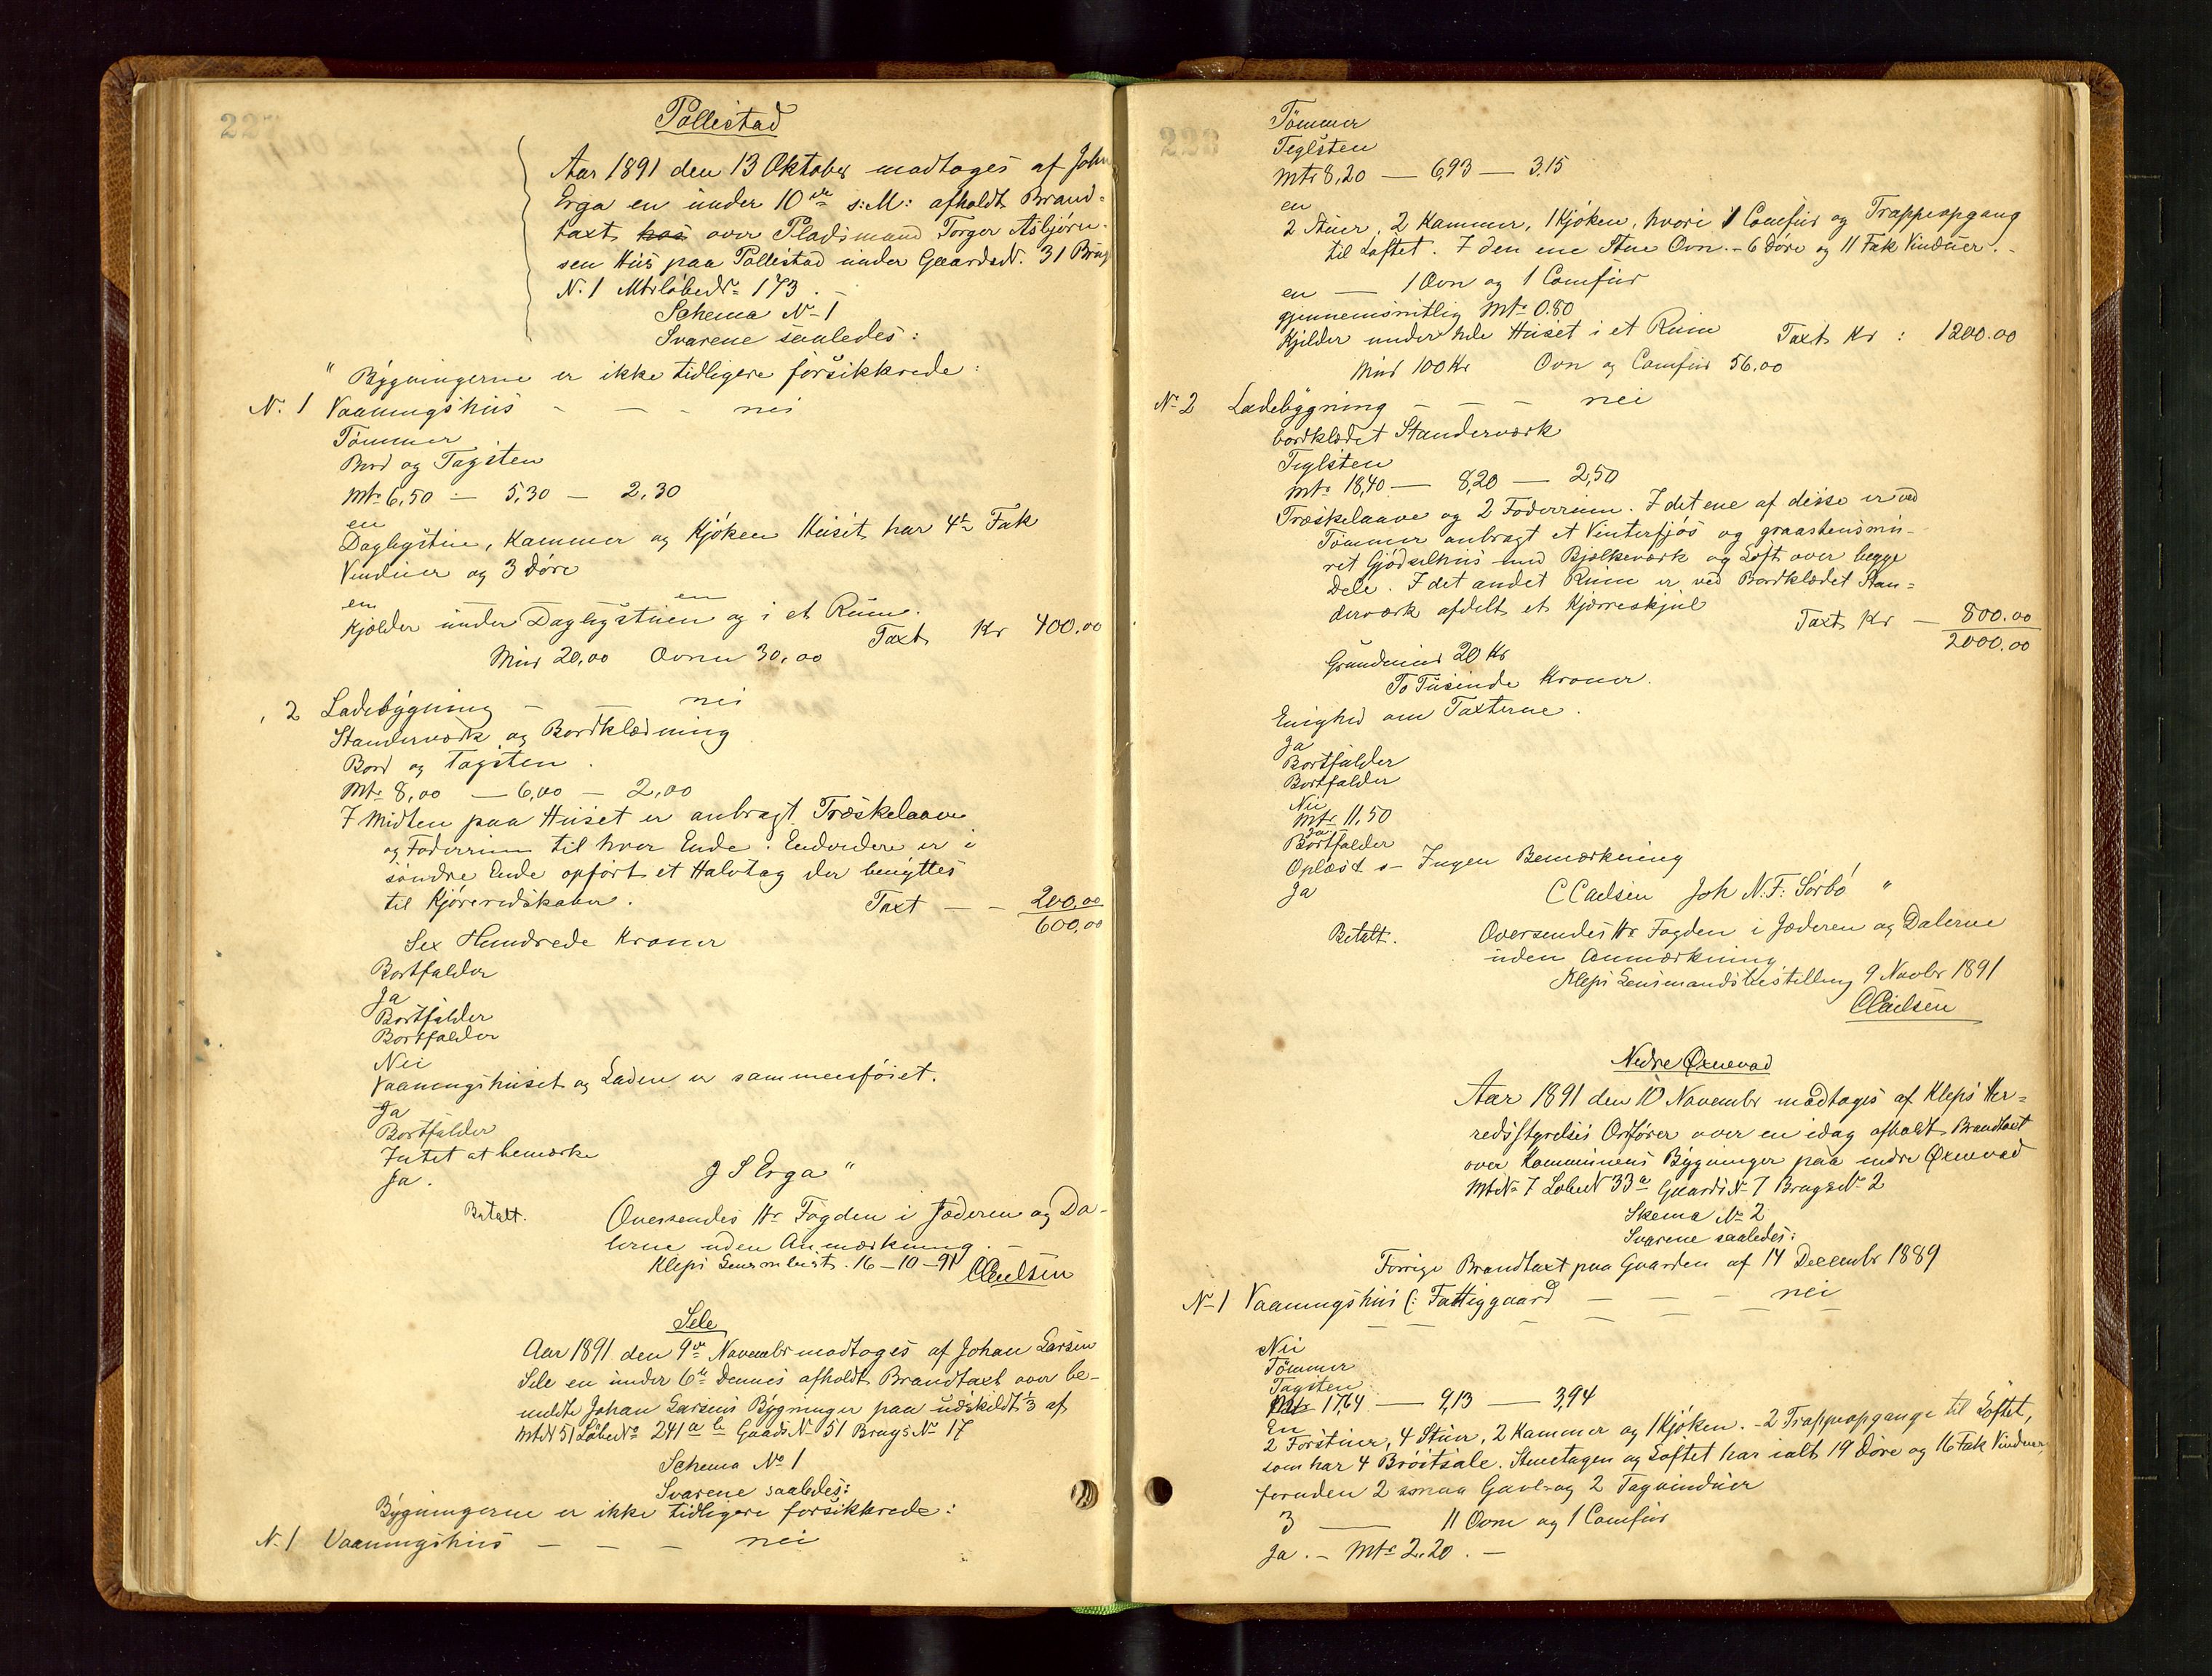 227
Pollestad
Aar 1891 den 13 Oktober modtoges af John
Erga en under 10de s: M: afholdt Brand-
taxt hos over Pladsmand Torger Asbjørn-
sen Hus paa Pollestad under GaardsN. 31 Brug
N. 1 MtrløbeN= 173. -
Schema N- 1
Svarene saaledes:
" Bygningerne er ikke tidligere forsikkrede:
N. 1 Vaaningshus - - - nei
Tømmer
Bord og Tagsten
Mtr 6,50 - 5,30 - 2,30
en
Daglygstue, Kammer og Kjøken Huset har 4re Fak
Vinduer og 3 Døre
en
en
Kjelder under Daglygstuen og i et Rum.
Taxt Kr 400,00
Mur 20,00 Ovnen 30,00
, 2 Ladebygning - - nei
Standerværk og Bordklædning
Bord og Tagsten.
Mtr 8,00 - 6,00 - 2,00
I Midten paa Huset er anbragt Træskelaave
og Foderrum til hver Ende. Endvidere er i
søndre Ende opført et Halvtag der benyttes
til Kjøreredskaber. Taxt - - 200,00
600,00
Sex Hundrede Kroner
Bortfalder
Ja
Bortfalder
Bortfalder
Nei
Vaaningshuset og Laden er sammenføiet.
Ja
Bortfalder
Intet at bemærke
Ja.
J S Erga "
Betalt. Oversendes Hr Fogden i Jæderen og Da-
lerne uden Anmærkning. -
Kleps Lensmbest. 16-10-91
CCarlsen
Sele
Aar 1891 den 9de Novembr modtoges af Johan Larsen
Sele en under 6te Dennes afholdt Brandtaxt over be-
meldte Johan Larsens Bygninger paa udskildt 1/3 af
MtN 51 LøbeNo 241 a b GaadsN- 51 BrugsN- 17
Schema No 1
Svarene saaledes:
Bygningerne er ikke tidligere forsikkrede:
N. 1 Vaaningshus - - - nei
228
Tømmer
Teglsten
Mtr 8,20 - 6,93 - 3,15
en
2 Stuer, 2 Kammer, 1 Kjøken, hvori 1 Comfur og Trappeopgang
til Loftet. I den ene Stue Ovn. - 6 Døre og 11 Fak Vinduer. -
en - 1 Ovn og 1 Comfur
gjennemsnitlig Mtr 0.80
Kjelder under hele Huset i et Rum Taxt Kr : 1200.00
Mur 100 Kr Ovn og Comfur 56,00
N- 2 Ladebygning - - - nei
bordklædet Standerværk
Teglsten
Mtr 18,40 - 8,20 - 2,50
Træskelaave og 2 Foderrum. I det ene af disse er ved
Tømmer anbragt et Vinterfjøs og graastensmu-
ret Gjødselhus med Bjelkeværk og Loft over begge
Dele. I det andet Rum er ved Bordklædet Stan-
derværk afdelt et Kjærreskjul
Taxt Kr - 800.00
2000.00
Grundmur 20 Kr
To Tusinde Kroner.
Enighed om Taxterne.
Ja
Bortfalder
Bortfalder
Nei
Mtr 11,50
Ja
Bortfalder
Oplæst - Ingen Bemærkning
Ja
CCarlsen Joh N. F: Sørbø "
Betalt. Oversendes Hr Fogden i Jæderen og Dalerne
uden Anmærkning
Kleps Lensmandsbestilling 9 Novbr 1891
CCarlsen
Nedre Øxnevad
Aar 1891 den 10 Novembr modtoges af Kleps Her-
redsstyrelses Ordfører over en idag afholdt Brandtaxt
over Kommunens Bygninger paa nedre Øxnevad
MtN- 7 LøbeN 33a GaardsN- 7 BrugsN- 2
Skema No 2
Svarene saaledes:
Forrige Brandtaxt paa Gaarden af 14 Decembr 1889
N- 1 Vaaningshus (: Fattiggaard - - - nei
Nei
Tømmer
Tagsten
Mtr 17,64 - 9,13 - 3,94
En
2 Forstuer, 4 Stuer, 2 Kammer og 1 Kjøken. - 2 Trappeopgange til Loftet,
som har 4 Brøstsale. Stuetagen og Loftet har ialt 19 Døre og 16 Fak Vinduer
foruden 2 smaa Gavl- og 2 Tagvinduer
3 - 11 Ovne og 1 Comfur
Ja. - Mtr 2,20. -